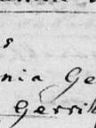 s
nia Ge
Gerrit